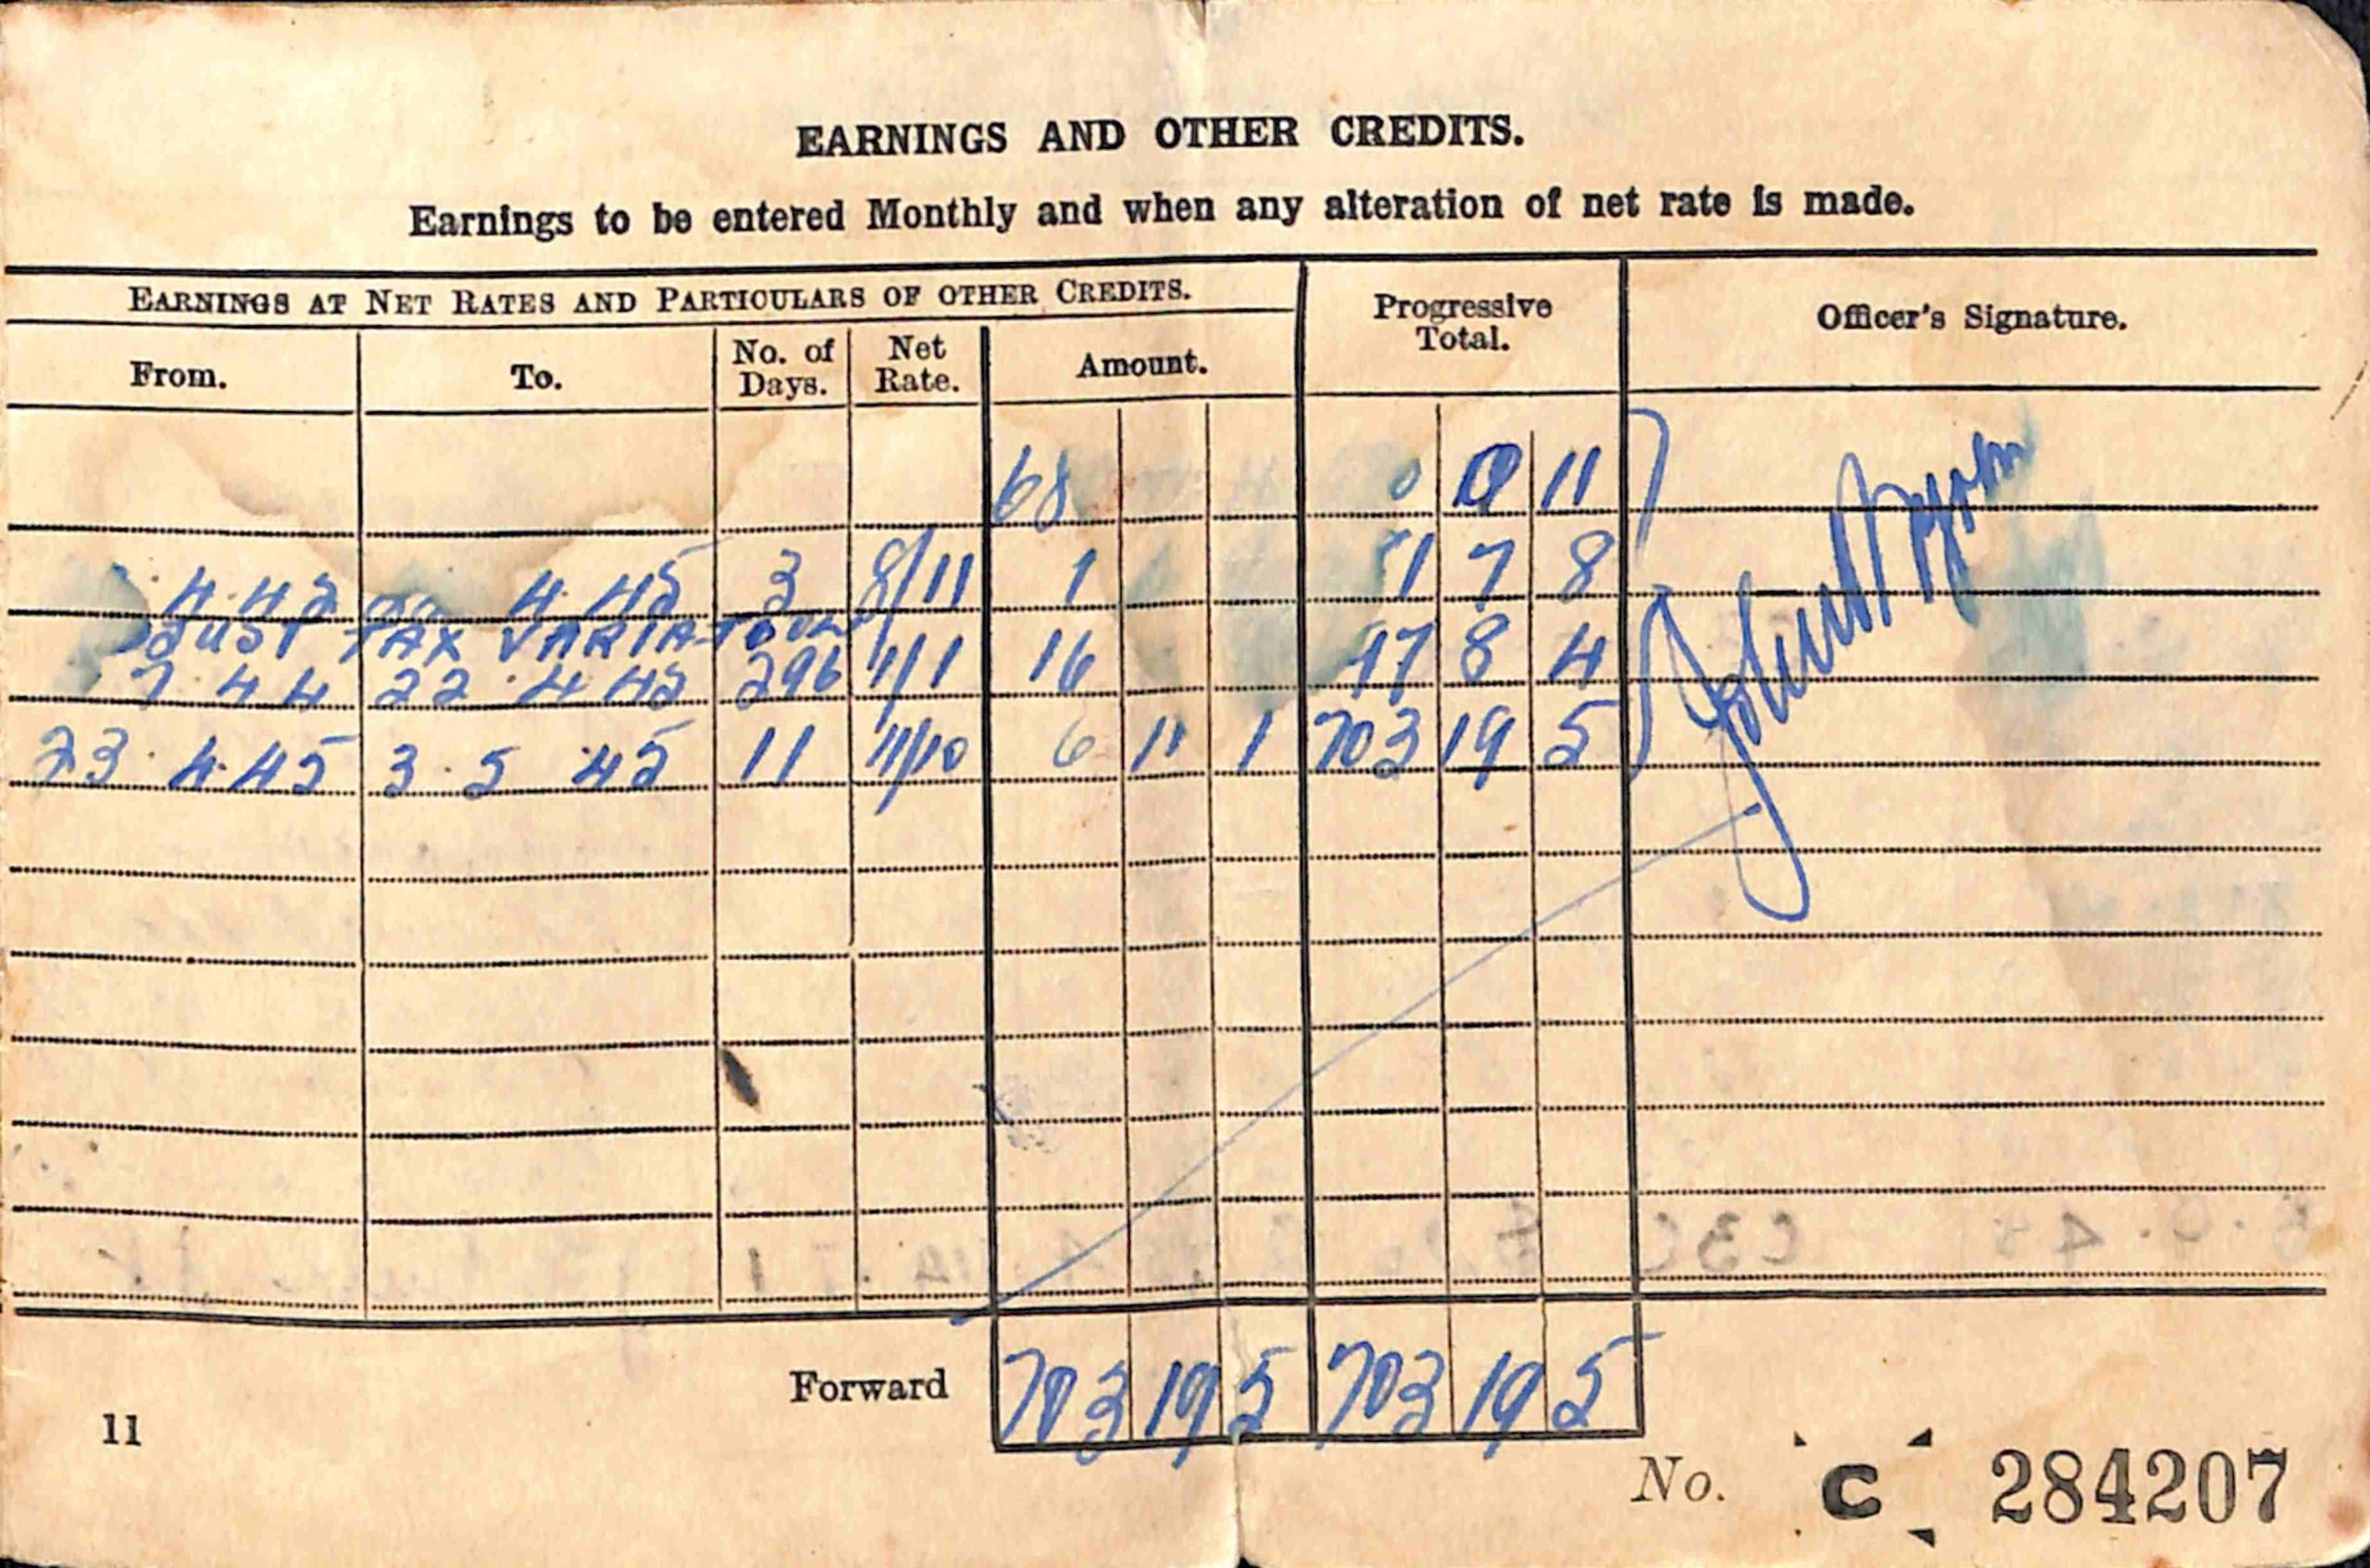 EARNINGS AND OTHER CREDITS.
Earnings to be entered Monthly and when any alteration of net rate is made.
EARNINGS AT NET RATES AND PARTICULARS OF OTHER CREDITS. Progressive Total. Officer's Signature.
From. To. No. of Days. Net Rate. Amount.
68 0 11
4.45 4 45 3 8/11 1 1 7 8
TAX VARIATION
7 44 22.4 45 296 1/1 16 17 8 4
23.4.45 3.5 45 11 11/10 6 11 1 703 19 5
Forward 703 19 5 703 19 5
11
No. C 284207